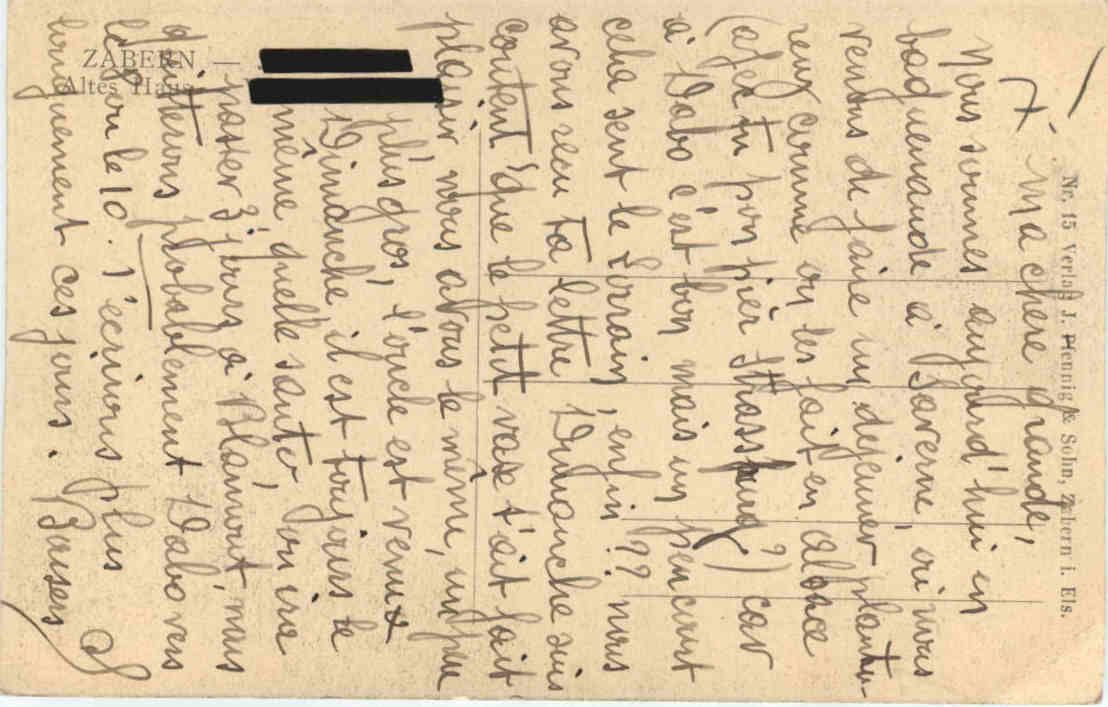 ZABERN —
Altes Haus
Nr. 15 Verlag J. Pfennig & Sohn, Zabern i. Els.
7. Ma chère grande,
Nous sommes aujourd'hui en
baguenaude à Saverne, où nous
venons de faire un dejeuner plantu-
reux comme on les fait en alsace
(afec tu pon pièr Strassburg?) car
à Dabo c'est bon mais un peu court
cela sent le Lorrain, enfin ?? nous
avons reçu ta lettre Dimanche suis
content que le petit vase t'ait fait
plaisir nous avons le même, un peu
plus gros, l'oncle est venu
Dimanche il est toujours le
même quelle santé on ira
passer 3 jours à Blâmont mais
quitterons probablement Dabo vers
le 9 ou le 10. t'écrirons plus
longuement ces jours. Baisers